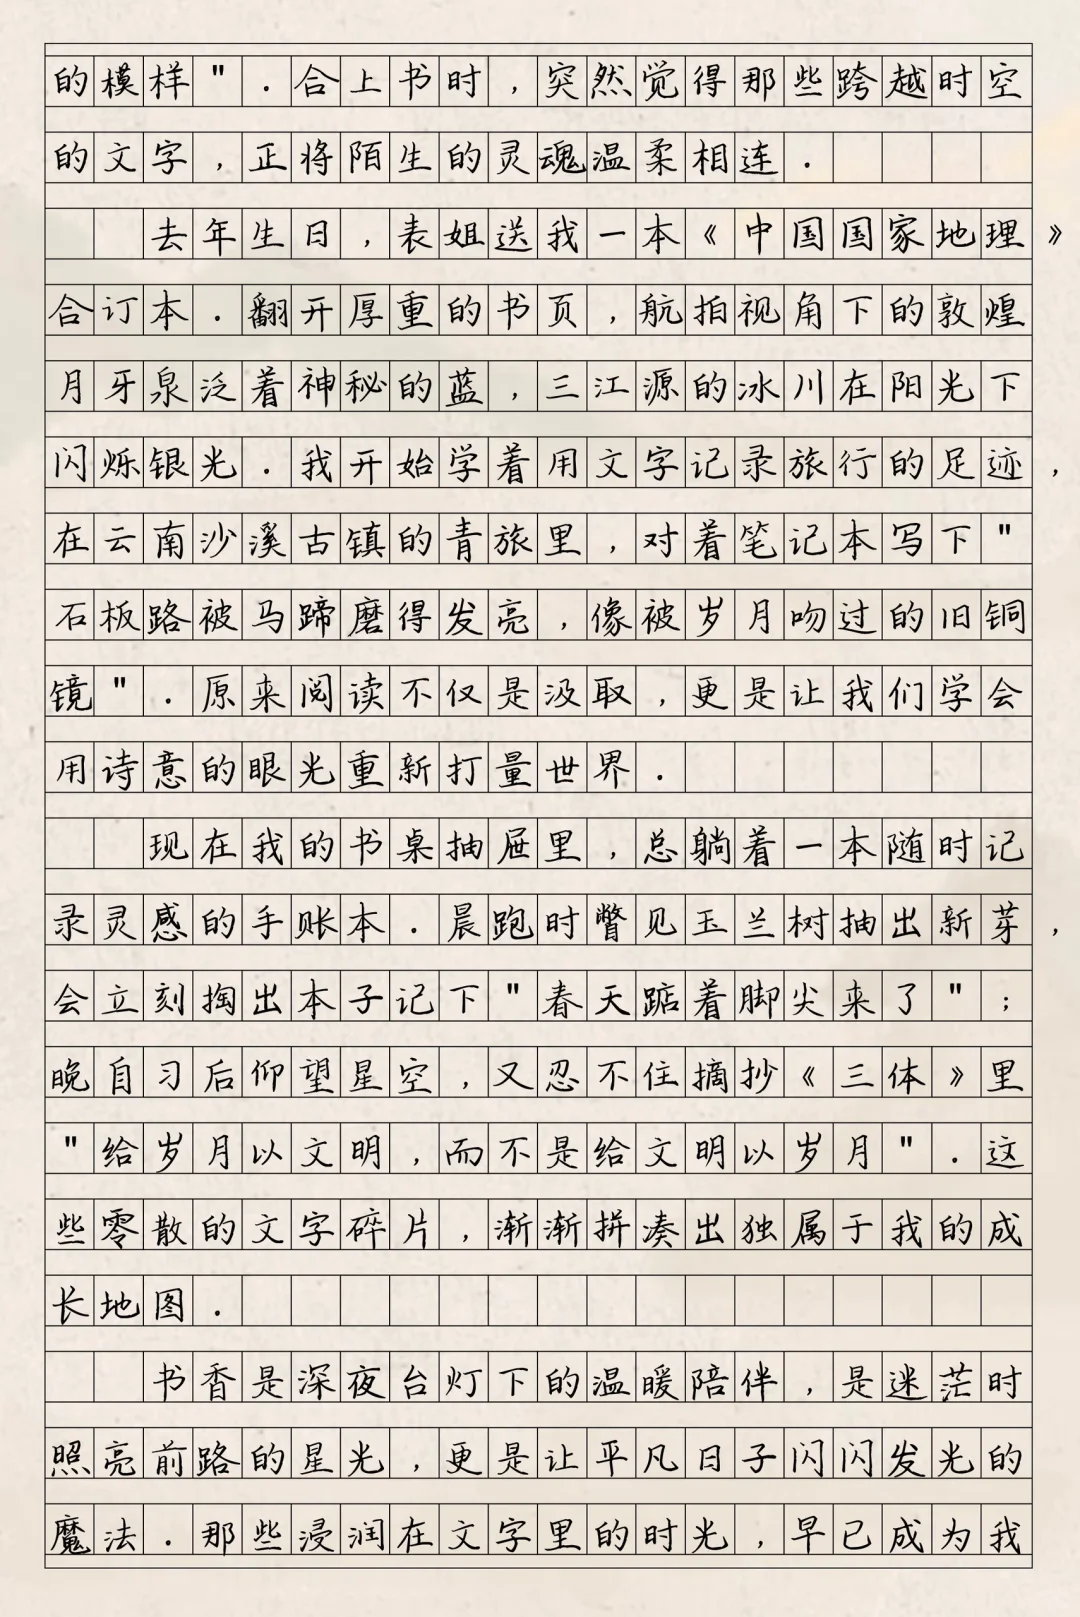 的模样".合上书时,突然觉得那些跨越时空
的文字,正将陌生的灵魂温柔相连.
去年生日,表姐送我一本《中国国家地理》
合订本.翻开厚重的书页,航拍视角下的敦煌
月牙泉泛着神秘的蓝,三江源的冰川在阳光下
闪烁银光.我开始学着用文字记录旅行的足迹,
在云南沙溪古镇的青旅里,对着笔记本写下"
石板路被马蹄磨得发亮,像被岁月吻过的旧铜
镜".原来阅读不仅是汲取,更是让我们学会
用诗意的眼光重新打量世界.
现在我的书桌抽屉里,总躺着一本随时记
录灵感的手账本.晨跑时瞥见玉兰树抽出新芽,
会立刻掏出本子记下"春天踮着脚尖来了";
晚自习后仰望星空,又忍不住摘抄《三体》里
"给岁月以文明,而不是给文明以岁月".这
些零散的文字碎片,渐渐拼凑出独属于我的成
长地图.
书香是深夜台灯下的温暖陪伴,是迷茫时
照亮前路的星光,更是让平凡日子闪闪发光的
魔法.那些浸润在文字里的时光,早已成为我